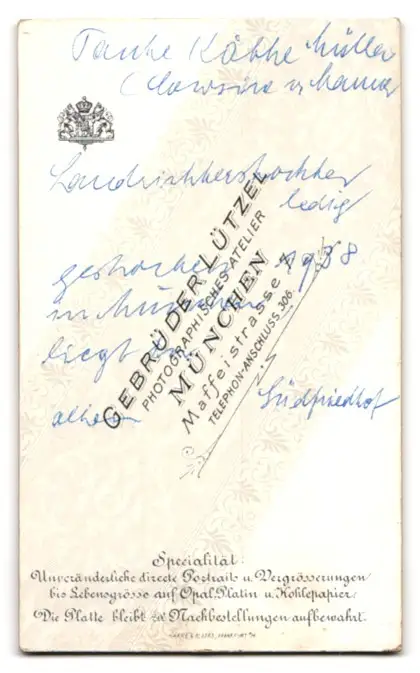 Tante Käthe Müller
(Cousine v. Mama)
Landrichterstochter
ledig
gestorben 1938
in München
liegt im
alten Südfriedhof
GEBRÜDER LÜTZEL
PHOTOGRAPHISCHES ATELIER
MÜNCHEN
Maffeistrasse
TELEPHON-ANSCHLUSS 306.
Specialität:
Unveränderliche directe Portraits u. Vergrösserungen
bis Lebensgrösse auf Opal, Platin u. Kohlepapier.
Die Platte bleibt für Nachbestellungen aufbewahrt.